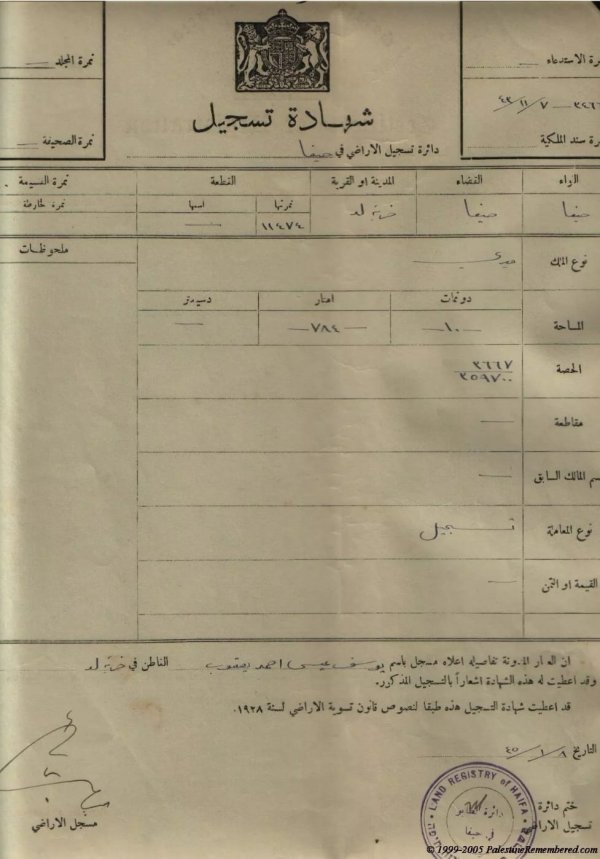 نمرة المجلد —
رة الاستدعاء —
شهادة تسجيل
٤٣/١١/٧
نمرة الصحيفة —
رة سند الملكية
دائرة تسجيل الاراضي في حيفا
اللواء القضاء المدينة او القرية القطعة نمرة القسيمة
نمرتها اسمها نمرة خارطة
حيفا حيفا خربة لد ١١٤٧٤ —
ملحوظات
نوع الملك ميري
دونمات امتار دسيمتر
المساحة —١٠— —٧٨٤— —
الحصة ٣٦٦٧
٣٥٩٧٠٠
مقاطعة —
سم المالك السابق —
نوع المعاملة تسجيل
القيمة او الثمن —
ان العقار المدونة تفاصيله اعلاه مسجل باسم يوسف عيسى احمد يعقوب القاطن في خربة لد
وقد اعطيت له هذه الشهادة اشعاراً بالتسجيل المذكور.
قد اعطيت شهادة التسجيل هذه طبقا لنصوص قانون تسوية الاراضي لسنة ١٩٢٨.
التاريخ ٤٥/١/٨
LAND REGISTRY of HAIFA
دائرة الطابو
في حيفا
ختم دائرة
تسجيل الاراضي
مسجل الاراضي
© 1999-2005 PalestineRemembered.com